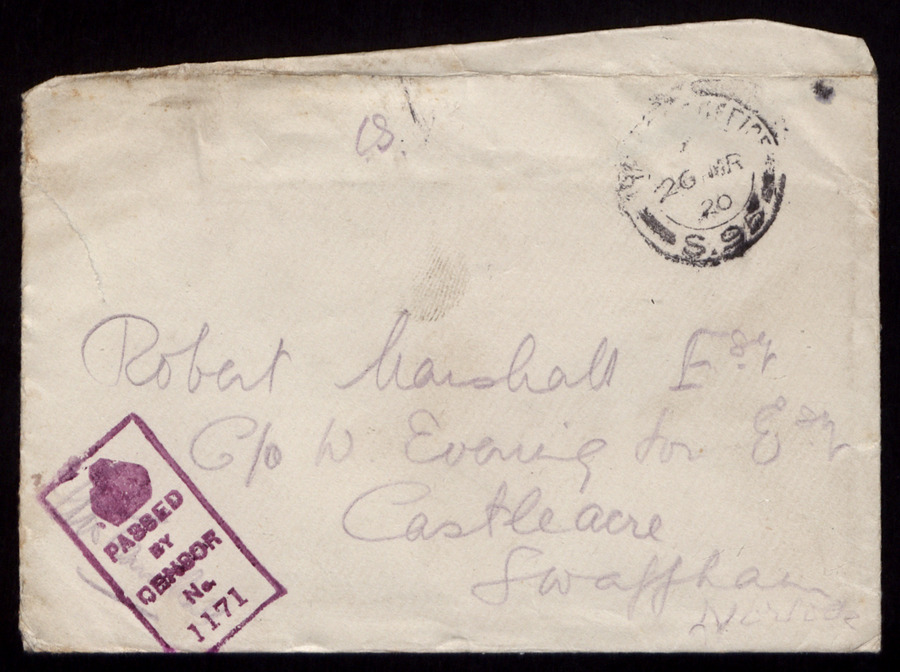 CS.
OFFICE
26 MR
20
S.95
Robert Marshall Esq
C/o W Evening Sen Esqr
Castleacre
Swaffham
Norfolk
PASSED
BY
CENSOR
No.
1171